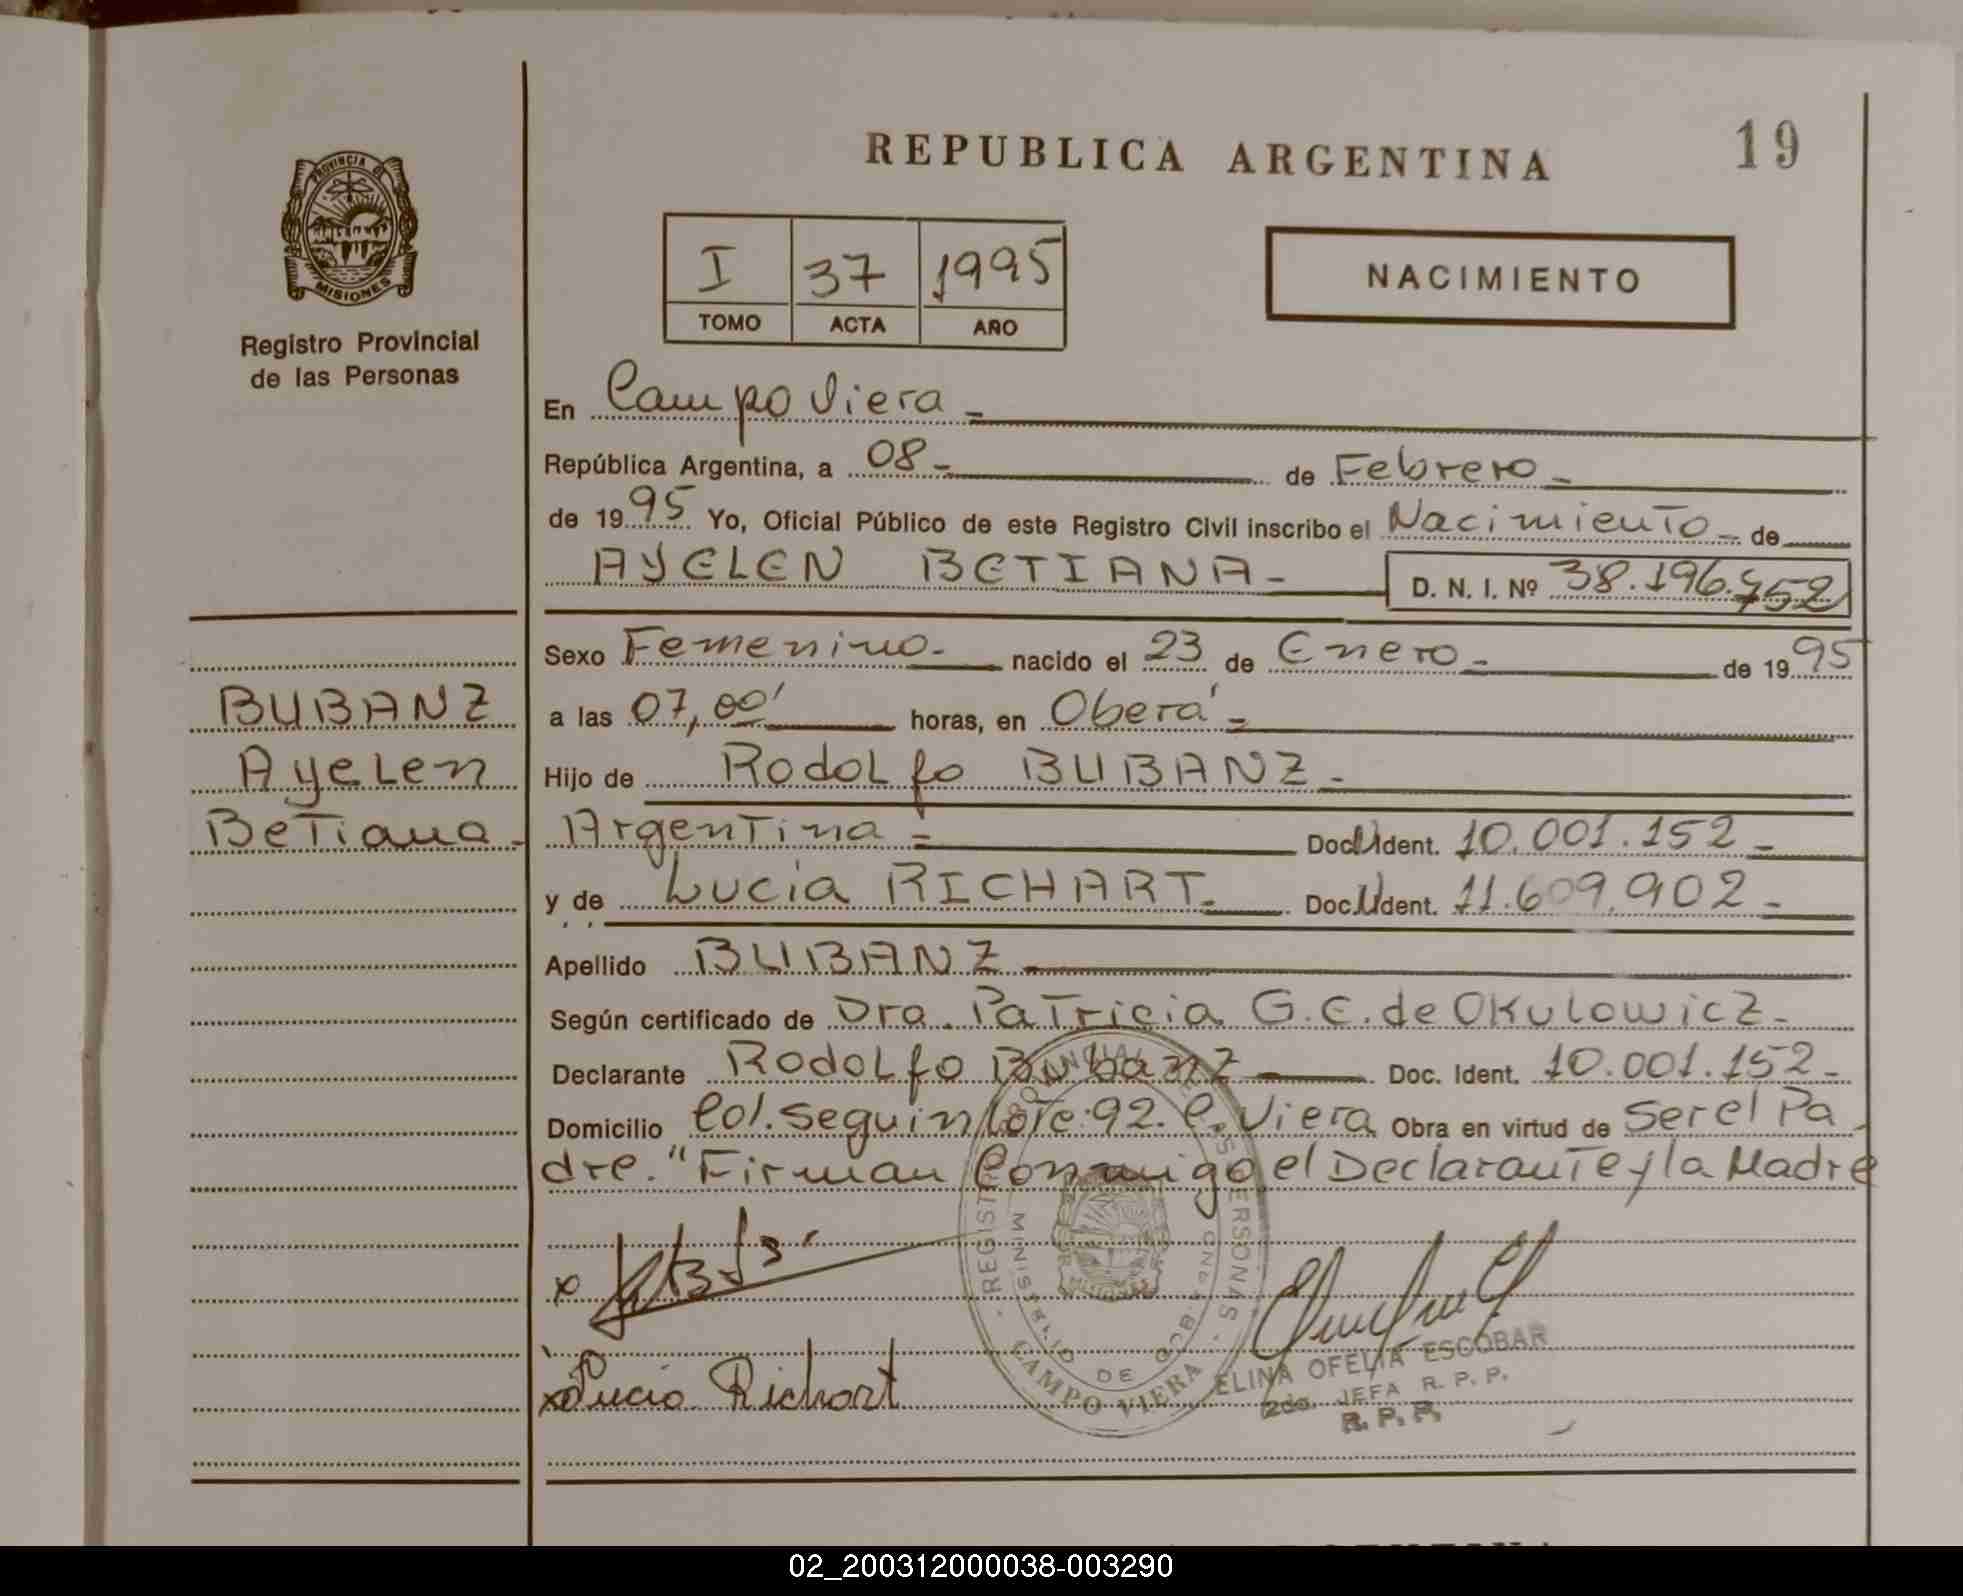 REPUBLICA ARGENTINA
19
PROVINCIA DE
MISIONES
Registro Provincial
de las Personas
I 37 1995
TOMO ACTA AÑO
NACIMIENTO
En Campo Viera -
República Argentina, a 08 - de Febrero -
de 1995 Yo, Oficial Público de este Registro Civil inscribo el Nacimiento - de
AYELEN BETIANA - D. N. I. Nº 38.196.952
Sexo Femenino - nacido el 23 de Enero - de 1995
BUBANZ
Ayelen
Betiana -
a las 07,00' horas, en Oberá -
Hijo de Rodolfo BUBANZ -
Argentina - Doc. Ident. 10.001.152 -
y de Lucia RICHART - Doc. Ident. 11.609.902 -
Apellido BUBANZ -
Según certificado de Dra. Patricia G.E. de Okulowicz -
Declarante Rodolfo Bubanz - Doc. Ident. 10.001.152 -
Domicilio Col. Seguin Lote: 92. C. Viera Obra en virtud de Ser el Pa
dre. "Firman Conmigo el Declarante y la Madre
x
x Lucia Richart
REGISTRO PROVINCIAL DE LAS PERSONAS
MINISTERIO DE GOB
MISIONES
CAMPO VIERA
ELINA OFELIA ESCOBAR
2do. JEFA R. P. P.
R. P. P.
02_200312000038-003290